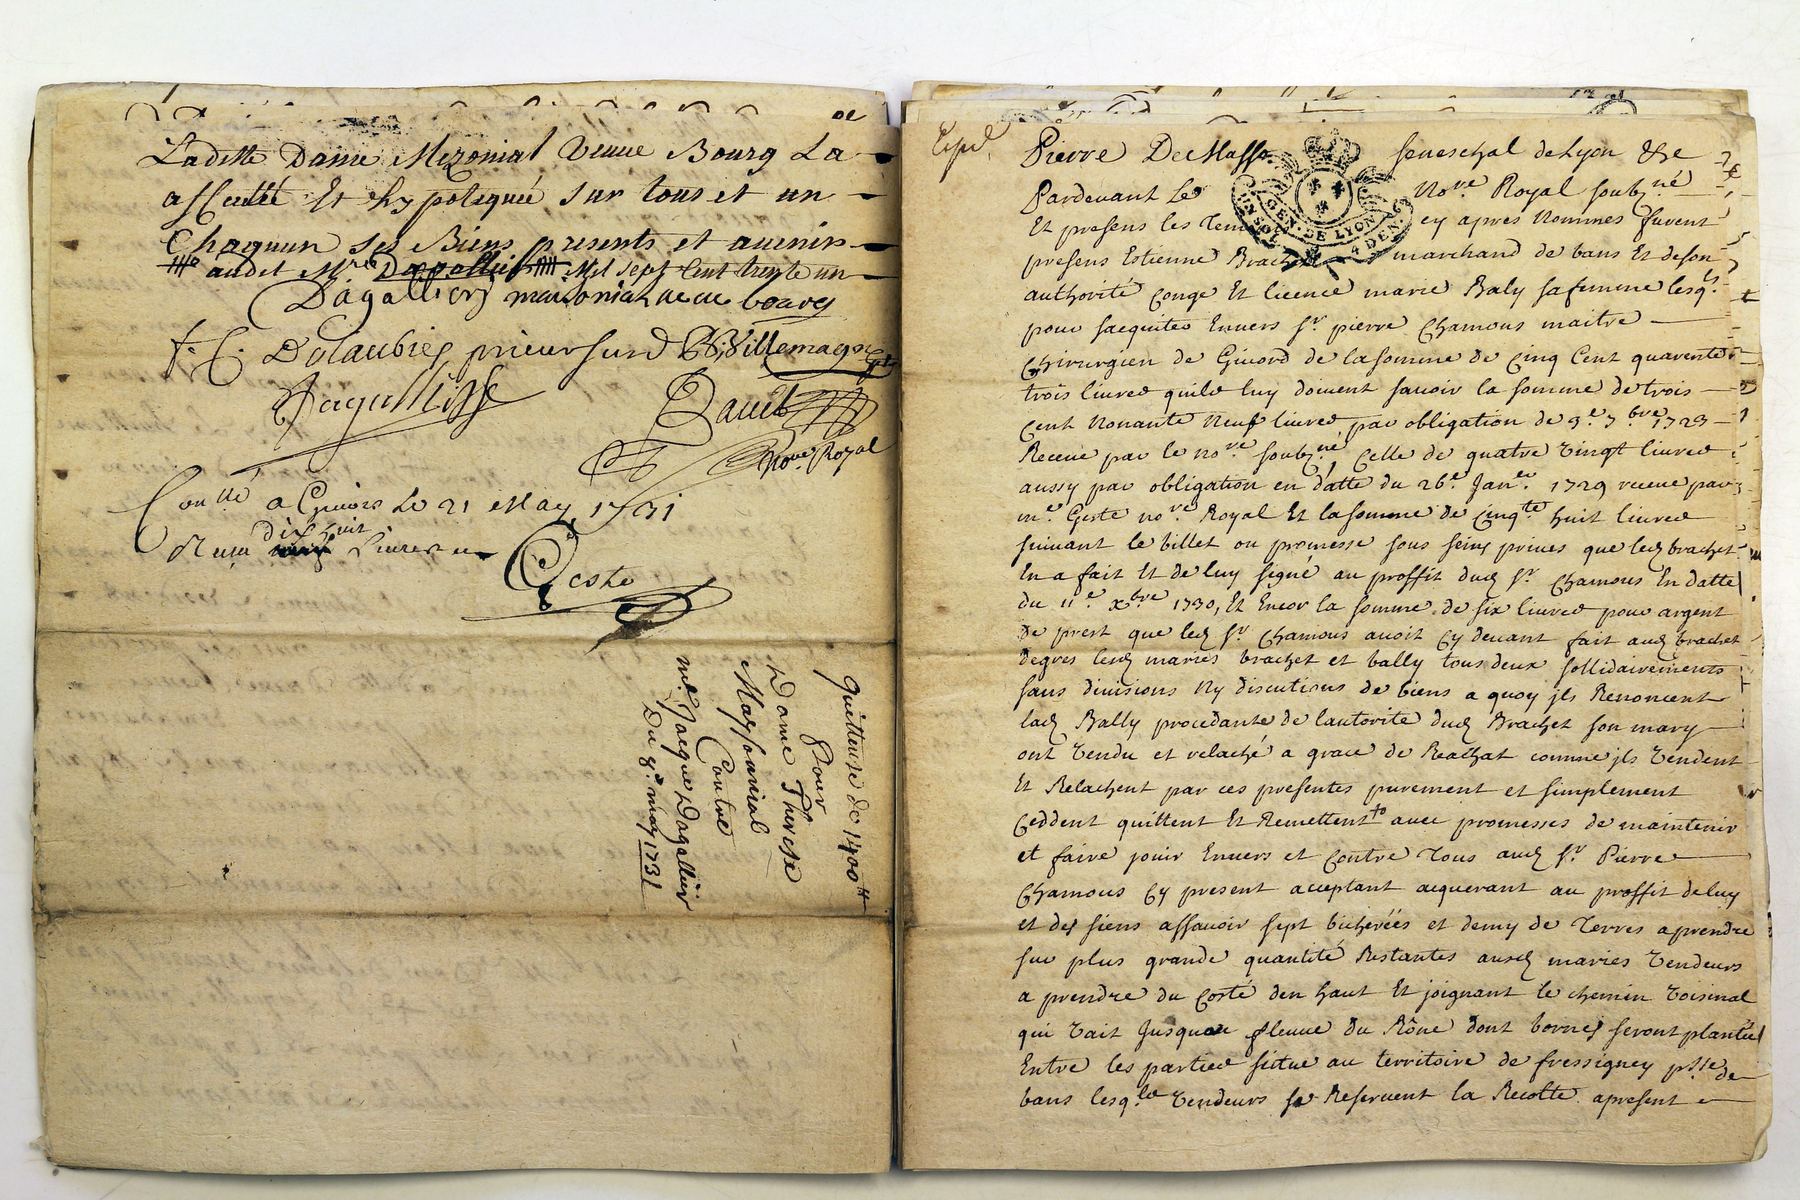 Laditte Dame Mezonial Veuve Bourg La
affecttée Et hypotequée sur tous et un
Chaquun ses Biens presents et avenirs
audit Mre Dagallier Mil sept Cent trente un
Dagallier maisonial veuve bourg
f. C. Delaubies prieur surd Villemagne
Jaque Misse
Bauct
Nore Royal
Conllé a Givors Le 21 May 1731
Reçu dix huit Livres
Geste
Quittence de 1400tt
Pour
Dame Therese
Maysonnial
Contre
me Jacque Dagallier
Du 8e may 1731
Expd
Pierre De Masso seneschal de Lyon &c
Pardevant Le Nore Royal soubzné
Et presens les Tem cy apres Nommes furent
presens Estienne Brachet marchand de bans Et de son
authorité Conge Et licence marie Baly sa femme lesqs
pour sacquiter Envers Sr pierre Chamous maitre
Chirurgien de Givord de la somme de Cinq Cent quarente
trois livres quils luy doivent savoir la somme de trois
Cent Nonante Neuf livres par obligation de 9e 7bre 1723
Receue par le nore soubzné, Celle de quatre vingt livres
aussy par obligation en datte du 26e Janer 1729 receue par
me Geste nore Royal Et la somme de Cinqte huit livres
suivant le billet ou promesse sous seing prives que led brachet
En a fait Et de luy signé au proffit dud Sr Chamous En datte
du 11e xbre 1730, Et Encor la somme de six livres pour argent
de prest que led Sr Chamous avoit Cy devant fait aud brachet
degres lesd mariés brachet et bally tous deux sollidairements
sans divisions Ny discutions de biens a quoy ils Renoncent
lad Bally procedante de lautorité dud Brachet son mary
ont Vendu et relaché a grace de Reachat comme ils Vendent
Et Relachent par ces presentes purement et simplement
Ceddent quittent Et Remettent avec promesses de maintenir
et faire jouir Envers et Contre Tous aud Sr Pierre
Chamous Cy present acceptant acquerant au proffit de luy
et des siens assavoir sept bicherées et demy de Terres a prendre
sur plus grande quantité Restantes ausd mariés Vendeurs
a prendre du Costé den haut Et joignant le chemin Voisinal
qui Vait Jusquau fleuve du Rône dont bornes seront plantées
Entre les parties situe au territoire de fressigney psse de
bans lesqls Vendeurs se Reservent la Recolte apresent